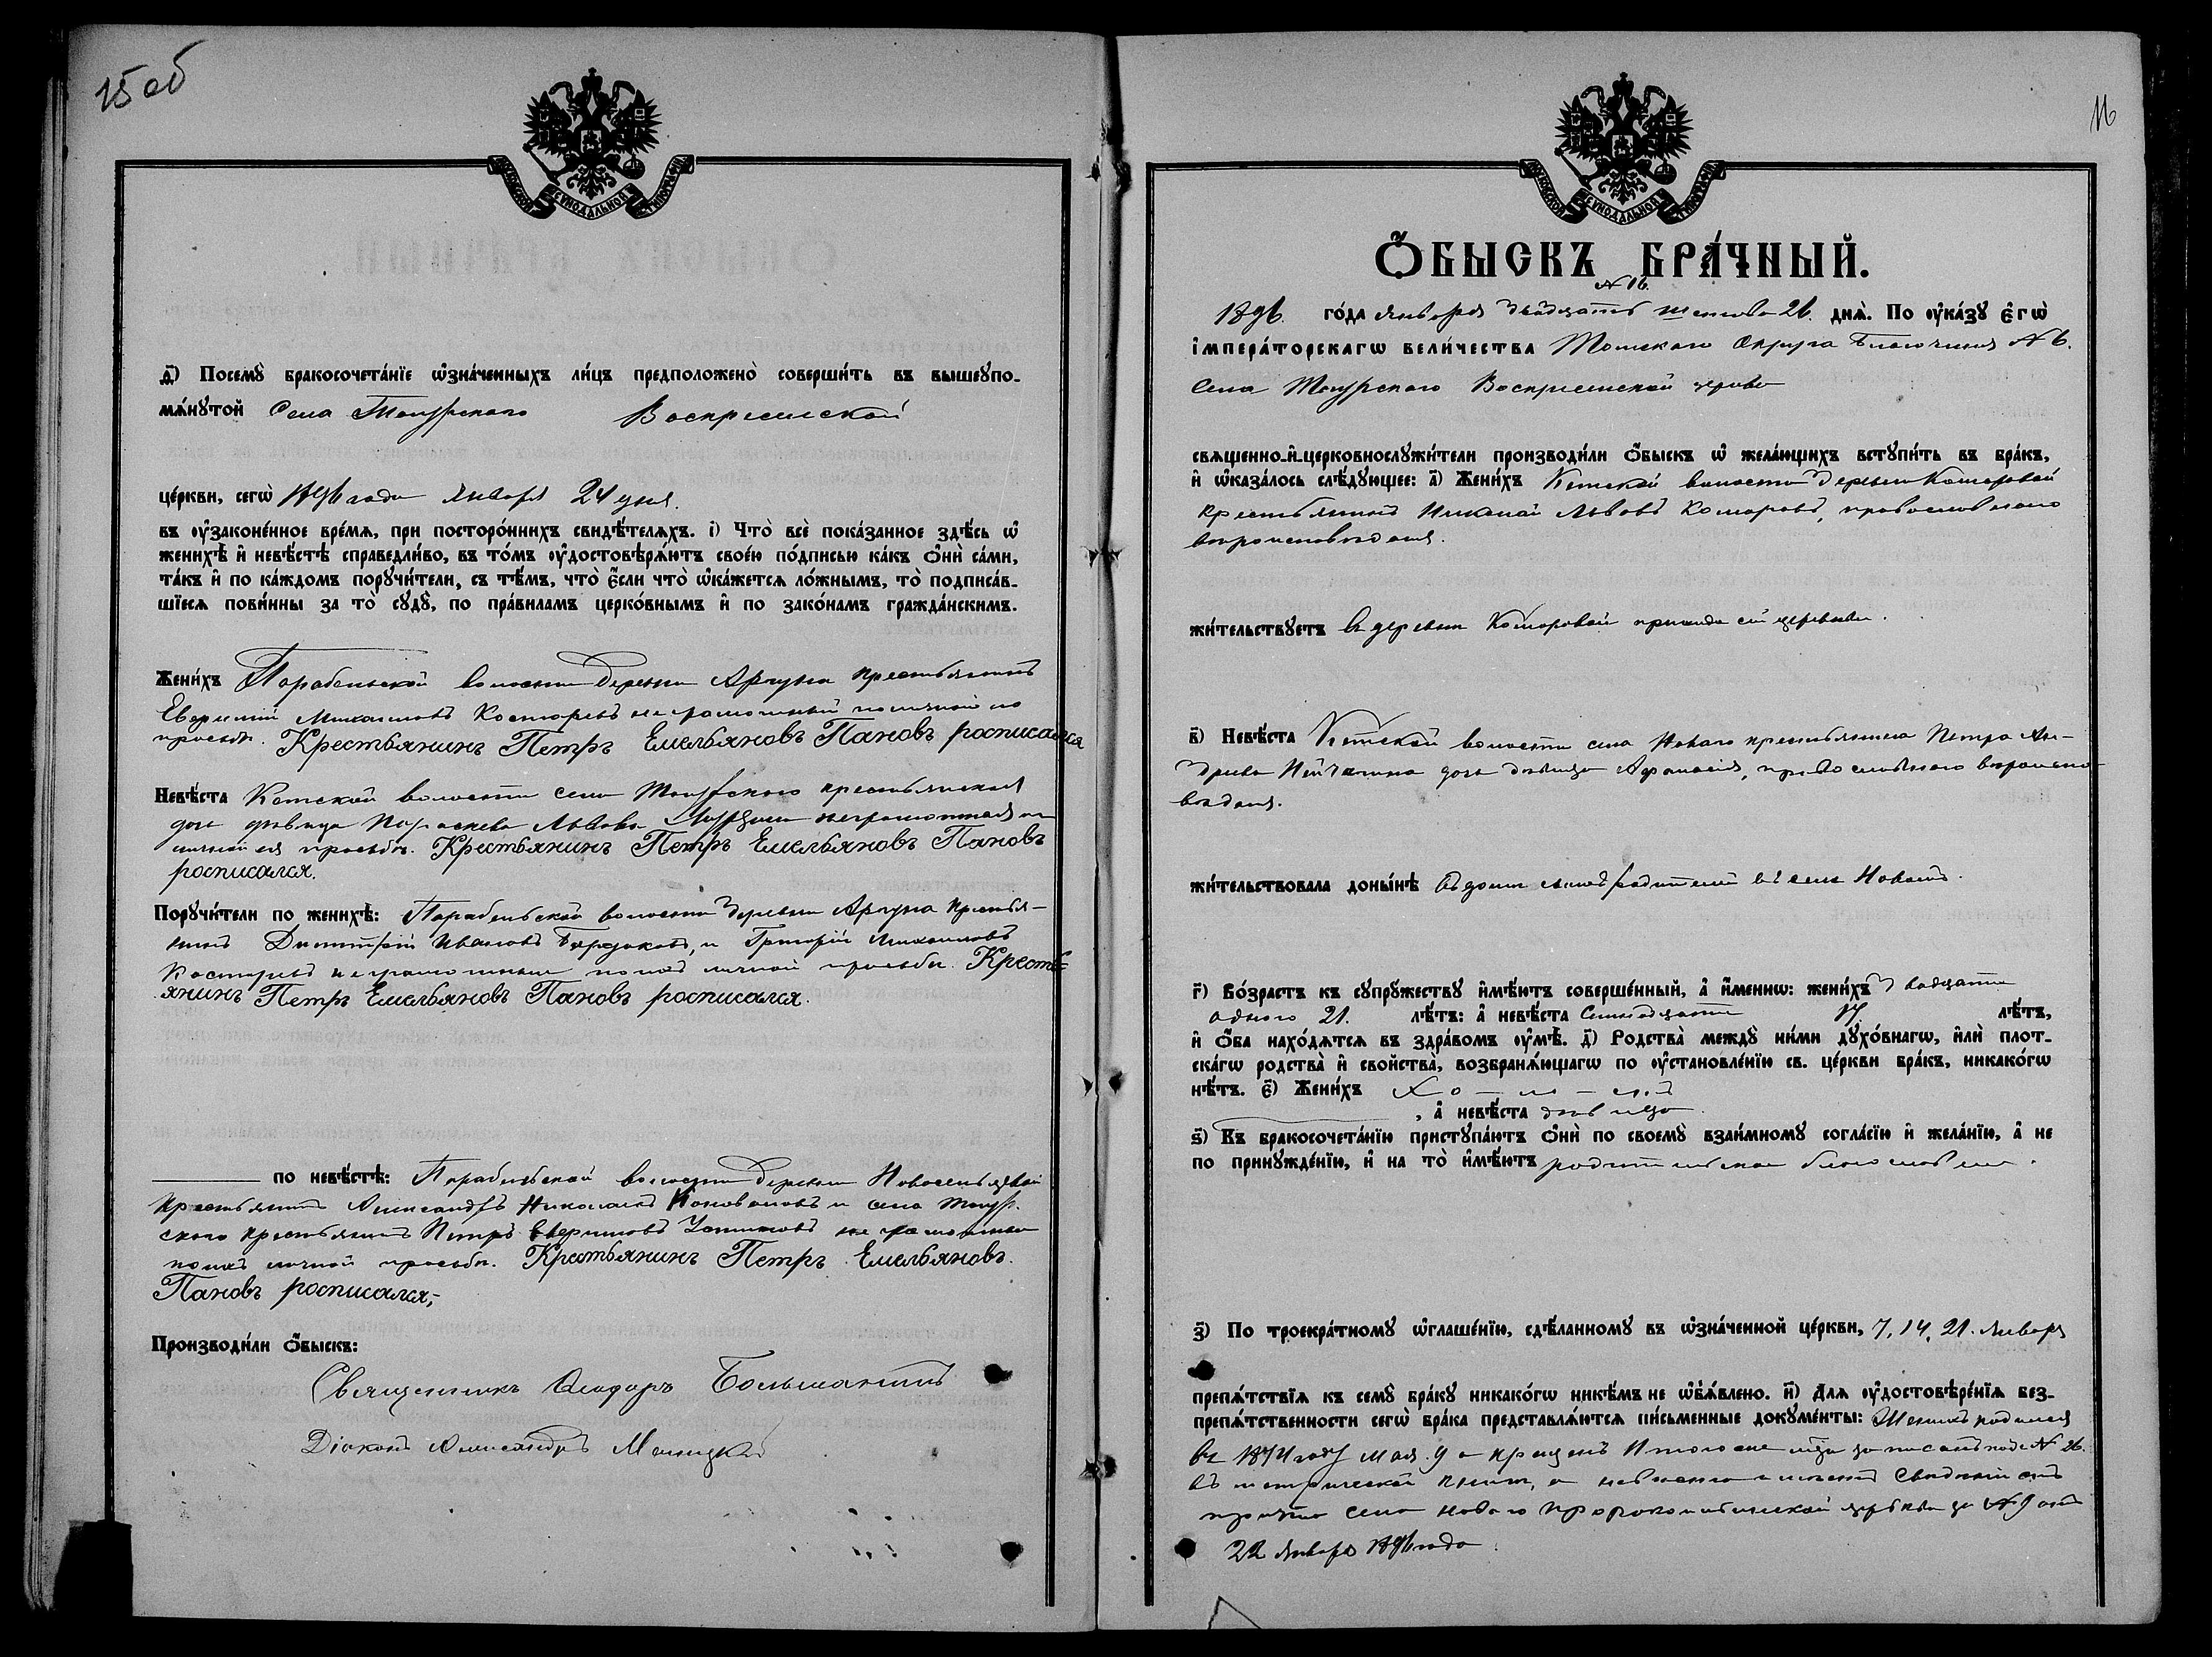 15 об
МОСКОВСКОЙ СѴНОДАЛЬНОЙ ТИПОГРАФІИ
д҃) Посемꙋ̀ бракосочета́нїе ѡ҆зна́ченныхъ ли́цъ предположено̀ соверши́ть въ вышеупо-
мѧ́нꙋтой Села Тогурскаго Воскресенской
це́ркви, сегѡ̀ 1896 года Января 24 дня.
въ ᲂу҆законе́нное вре́мѧ, при посторо́ннихъ свидѣ́телѧхъ. і҃) Что̀ всѐ пока́занное здѣ́сь ѡ҆
женихѣ̀ и҆ невѣ́стѣ справедли́во, въ то́мъ ᲂу҆достовѣрѧ́ютъ свое́ю по́дписью ка́къ ѻ҆нѝ са́ми,
та́къ и҆ по ка́ждомъ порꙋчи́тели, съ тѣ́мъ, что̀ є҆́сли что̀ ѡ҆ка́жетсѧ ло́жнымъ, то̀ подписа́в-
шїесѧ пови́нны за то̀ сꙋдꙋ̀, по пра́виламъ церко́внымъ и҆ по зако́намъ гражда́нскимъ.
Жени́хъ Парабельской волости деревни Аргуна крестьянинъ
Михаиловъ Костаревъ неграмотный по личной его
просьбѣ. Крестьянинъ Петръ Емельяновъ Пановъ росписался
Невѣ́ста Кетской волости села Тогурскаго крестьянская
дочь дѣвица Параскева Львова неграмотная по
личной ея просьбѣ. Крестьянинъ Петръ Емельяновъ Пановъ
росписался.
Порꙋчи́тели по женихѣ̀: Парабельской волости деревни Аргуна крестья-
нинъ Димитрій Ивановъ и Григорій Михаиловъ
Костаревъ неграмотные по ихъ личной просьбѣ. Кресть-
янинъ Петръ Емельяновъ Пановъ росписался.
по невѣ́стѣ: Парабельской волости деревни Новосельцевой
крестьянинъ Александръ Николаевъ Коноваловъ и села Тогур-
скаго крестьянинъ Петръ неграмотные
по ихъ личной просьбѣ. Крестьянинъ Петръ Емельяновъ
Пановъ росписался;
Производи́ли ѻ҆́быскъ:
Священникъ Ѳеодоръ
Діаконъ Александръ
16
МОСКОВСКОЙ СѴНОДАЛЬНОЙ ТИПОГРАФІИ
Ѻ҆́БЫСКЪ БРА́ЧНЫЙ.
№ 16.
1896. го́да января двадцать шестаго 26. днѧ̀. По ᲂу҆ка́зꙋ є҆гѡ̀
і҆мпера́торскагѡ вели́чества Томскаго Округа Благочинія № 6.
Села Тогурскаго Воскресенской церкви
свѧщенно-и҆-церковнослꙋжи́тели производи́ли ѻ҆́быскъ ѡ҆ жела́ющихъ встꙋпи́ть въ бра́къ,
и҆ ѡ҆каза́лось слѣ́дꙋющее: а҃) Жени́хъ Кетской волости деревни Комаровой
крестьянинъ Николай Львовъ Комаровъ, православнаго
вѣроисповѣданія.
жи́тельствꙋетъ въ деревни Комаровой прихода сей церкви.
в҃) Невѣ́ста Кетской волости села Новаго крестьянина Петра Ан-
дреева дочь дѣвица Афанасія, православнаго вѣроиспо-
вѣданія.
жи́тельствовала доны́нѣ въ домѣ своихъ родителей въ селѣ Новомъ.
г҃) Во́зрастъ къ сꙋпрꙋжествꙋ и҆мѣ́ютъ соверше́нный, а҆ и҆́менно: жени́хъ двадцати
одного 21. лѣ́тъ: а҆ невѣ́ста Семнадцати 17 лѣ́тъ,
и҆ ѻ҆́ба нахо́дѧтсѧ въ здра́вомъ ᲂу҆мѣ̀. д҃) Родства̀ междꙋ̀ ни́ми дꙋхо́внагѡ, и҆лѝ плот-
ска́гѡ родства̀ и҆ свойства̀, возбранѧ́ющагѡ по ᲂу҆становле́нїю св. це́ркви бра́къ, никако́гѡ
нѣ́тъ. є҃) Жени́хъ Хо - ло - стъ
, а҆ невѣ́ста дѣвица.
ѕ҃) Къ бракосочета́нїю пристꙋпа́ютъ ѻ҆нѝ по своемꙋ̀ взаи́мномꙋ согла́сїю и҆ жела́нїю, а҆ не
по принꙋжде́нїю, и҆ на то̀ и҆мѣ́ютъ родительское благословеніе.
з҃) По троекра́тномꙋ ѡ҆глаше́нїю, сдѣ́ланномꙋ въ ѡ҆зна́ченной це́ркви, 7, 14, 21. Января
препѧ́тствїѧ къ семꙋ̀ бра́кꙋ никако́гѡ никѣ́мъ не ѡ҆б̾ѧ́влено. и҃) Длѧ ᲂу҆достовѣре́нїѧ без-
препѧ́тственности сегѡ̀ бра́ка представлѧ́ютсѧ пи́сьменные докꙋме́нты: Женихъ родился
въ 1874 году Мая 9 а крещенъ 11 того же м-ца записанъ подъ № 26.
въ метрической книгѣ, а
причта села Новаго церкви за № 9 отъ
22 Января 1896 года.